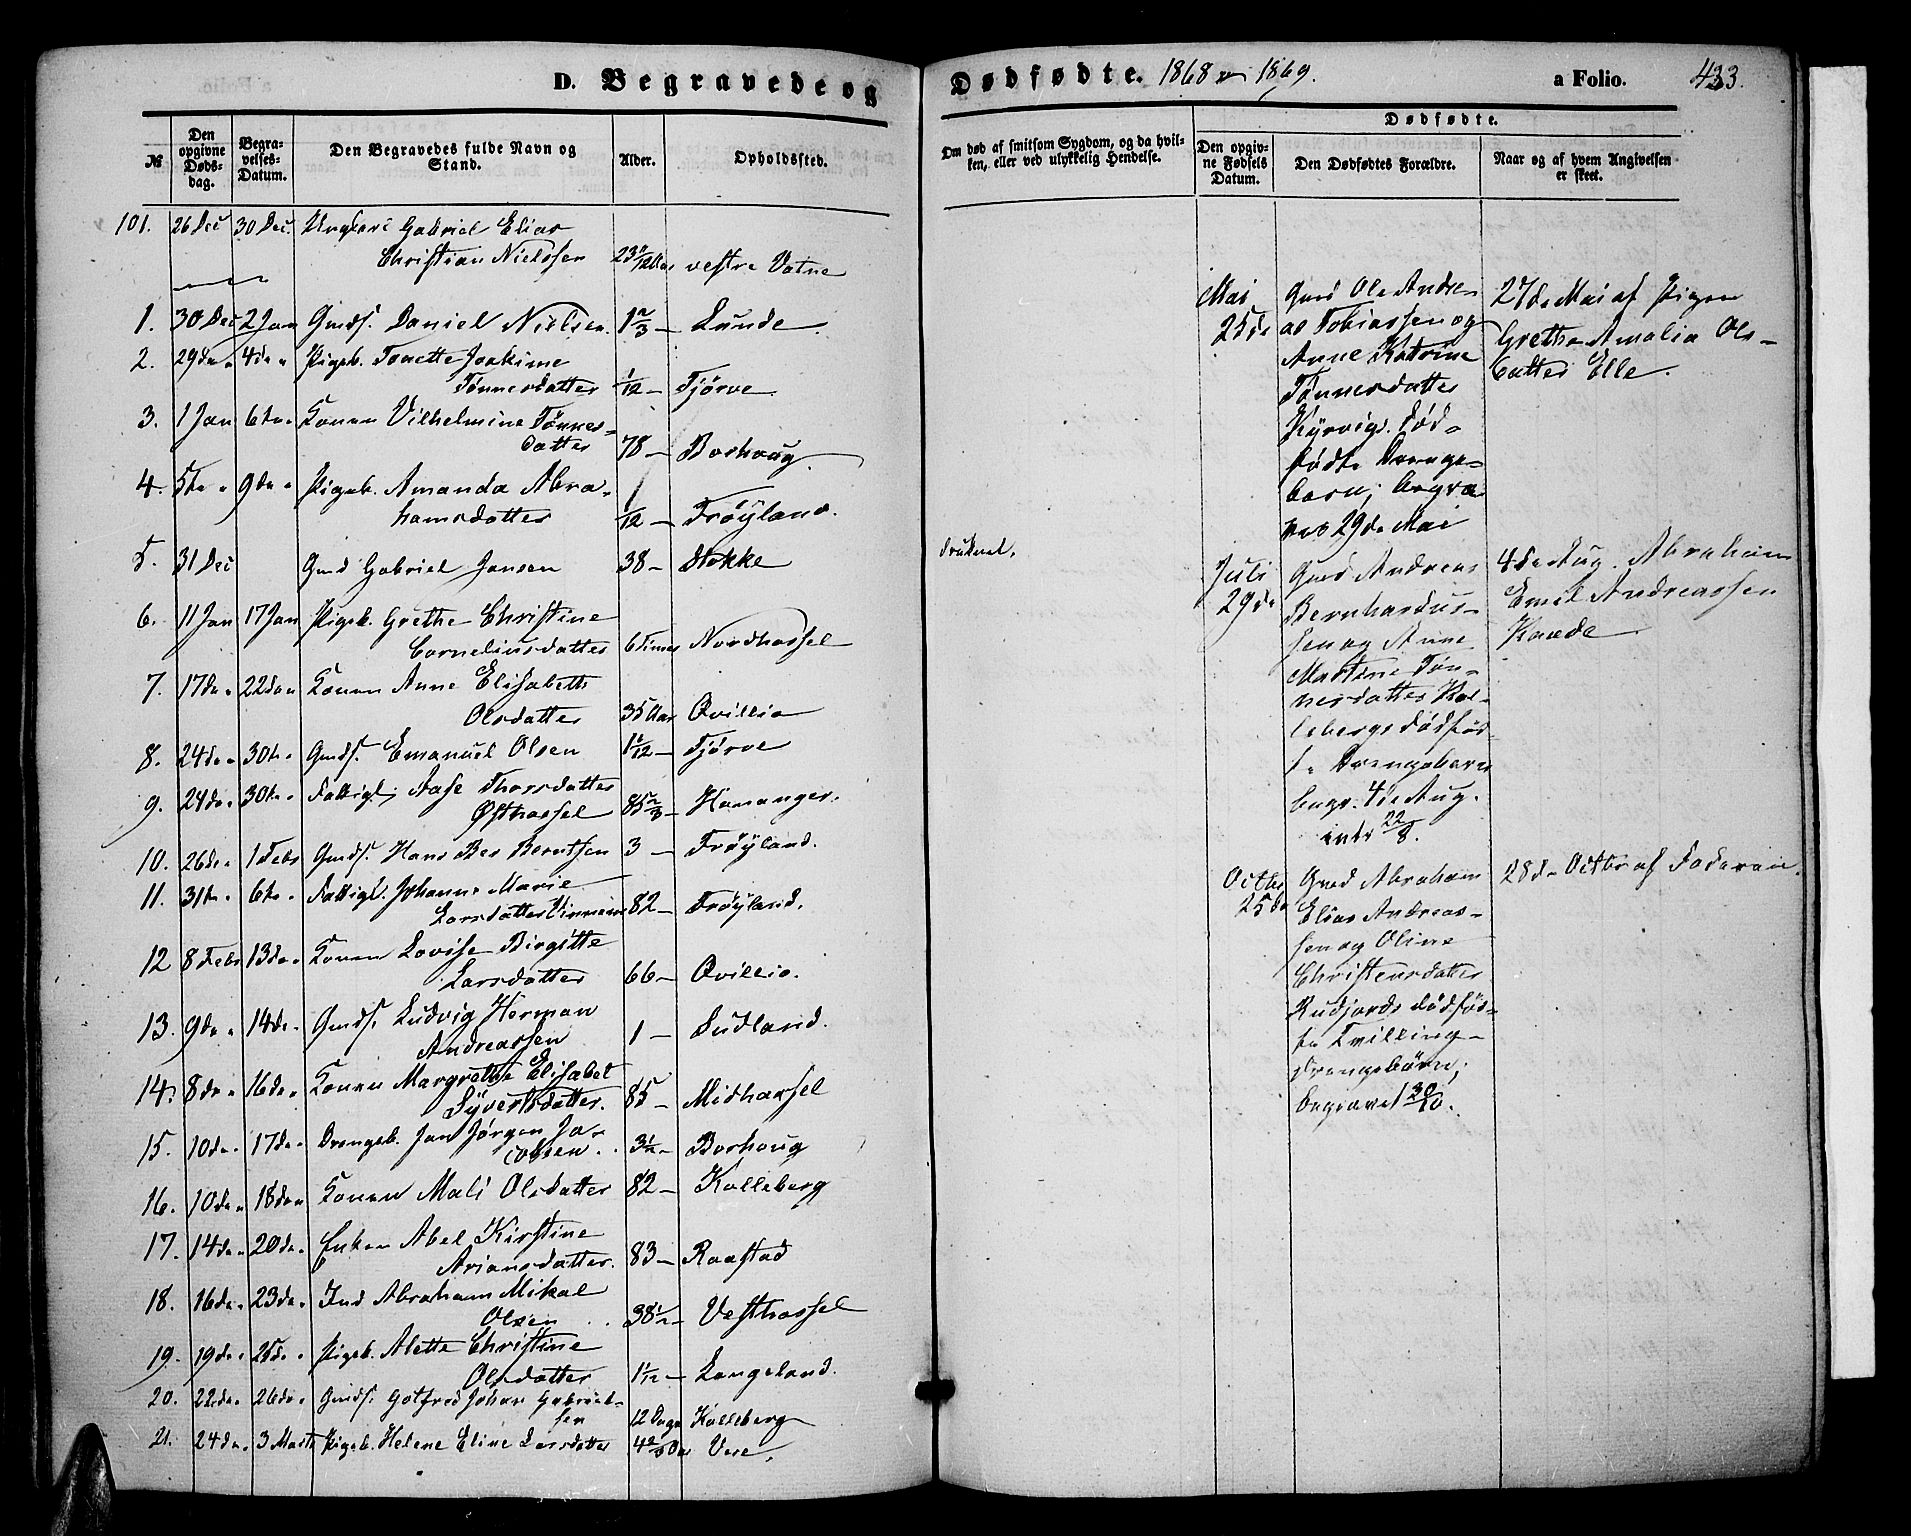 D. Begravede og Dødfødte. 1868 og 1869. a Folio. 433.
№ Den opgivne Døds-dag. Begra-velses-Datum. Den Begravedes fulde Navn og Stand. Alder. Opholdssted.
101. 26 Dec 30 Dec. Ungkarl Gabriel Elias
Christian Nielssen vestre Vatne
1. 30 Dec 2 Jan Gmds. Daniel Nielsen 1 2/3 – Lunde.
2. 29de 4de " Pigeb. Tonette Joakime
Tønnesdatter 1/12 – Tjørve
3. 1 Jan 6te " Konen Vilhelmine Tønnes-
datter 78 – Borhaug
4. 5te " 9de " Pigeb. Amanda Abra-
hamsdatter 1/12 – Frøyland.
5. 31 Dec Gmd Gabriel Jansen 38 – Stokke
6. 11 Jan 17 Jan Pigeb. Grethe Christine
Corneliusdatter 6 Timer Nordhassel
7. 17de " 22de " Konen Anne Elisabeth
Olsdatter 35 Aar Qvillio
8. 24de " 30te " Gmds. Emanuel Olsen 1 1/12 – Tjørve
9. 24de " 30te " Fattigl. Aase Thorsdatter
Østhassel 85 2/3 – Hananger.
10. 26de " 1 Febr Gmds. Hans Ber Berntsen 3 – Frøyland.
11. 31te " 6te " Fattigl. Johanne Marie
Larsdatter 82 – Frøyland.
12 8 Febr 13de " Konen Lovise Birgitte
Larsdatter 66 – Qvillio.
13. 9de " 14de " Gmds. Ludvig Herman
Andreassen 1 – Sudland.
14. 8de " 16de " Konen Margrethe Elisabet
Syvertsdatter. 85 – Midhassel
15. 10de " 17de " Drengeb. Jan Jørgen Ja-
cobsen. 3 1/2 – Borhaug
16. 10de " 18de " Konen Mali Olsdatter 82 – Kalleberg
17. 14de " 20de " Enken Abel Kirstine
Ariansdatter. 83 – Raastad
18. 16de " 23de " Ind Abraham Mikal
Olsen 38 1/2 – Vesthassel
19. 19de " 25de " Pigeb. Alette Christine
Olsdatter 1 1/12 – Langeland.
20. 22de " 26de " Gmds. Gotfred Johan Gabriel-
sen 12 Dage Kalleberg
21. 24de " 3 Marts Pigeb. Helene Eline Larsdatter Vere.
Om død af smitsom Sygdom, og da hvil-
ken, eller ved ulykkelig Hendelse.
Dødfødte.
Den opgiv-
ne Fødsels
Datum.
Den Dødfødtes Forældre.
Naar og af hvem Angivelsen
er skeet.
druknet.
Mai
25de
Gmd Ole Andre-
as Tobiassen og
Anne Katrine
Tønnesdatter
Kjørvigs. død-
født Drenge-
barn; begra-
ves 29de Mai
27de Mai af Pigen
Grethe Amalia Ols-
datter Elle.
Juli
29de
Gmd Andreas
Bernhardus-
sen og Anne
Martine Tøn-
nesdatter Kal-
lebergs dødfød-
te Drengebarn
begr. 4de Aug.
intr 22/8.
4de Aug. Abraham
Emil Andreassen
Kaade
Octbr
25de
Gmd Abraham
Elias Andreas-
sen og Oline
Christensdatter
Rudjords dødfød-
te Tvilling-
drengebørn;
begravet 30/10.
28de Octbr af Faderen.